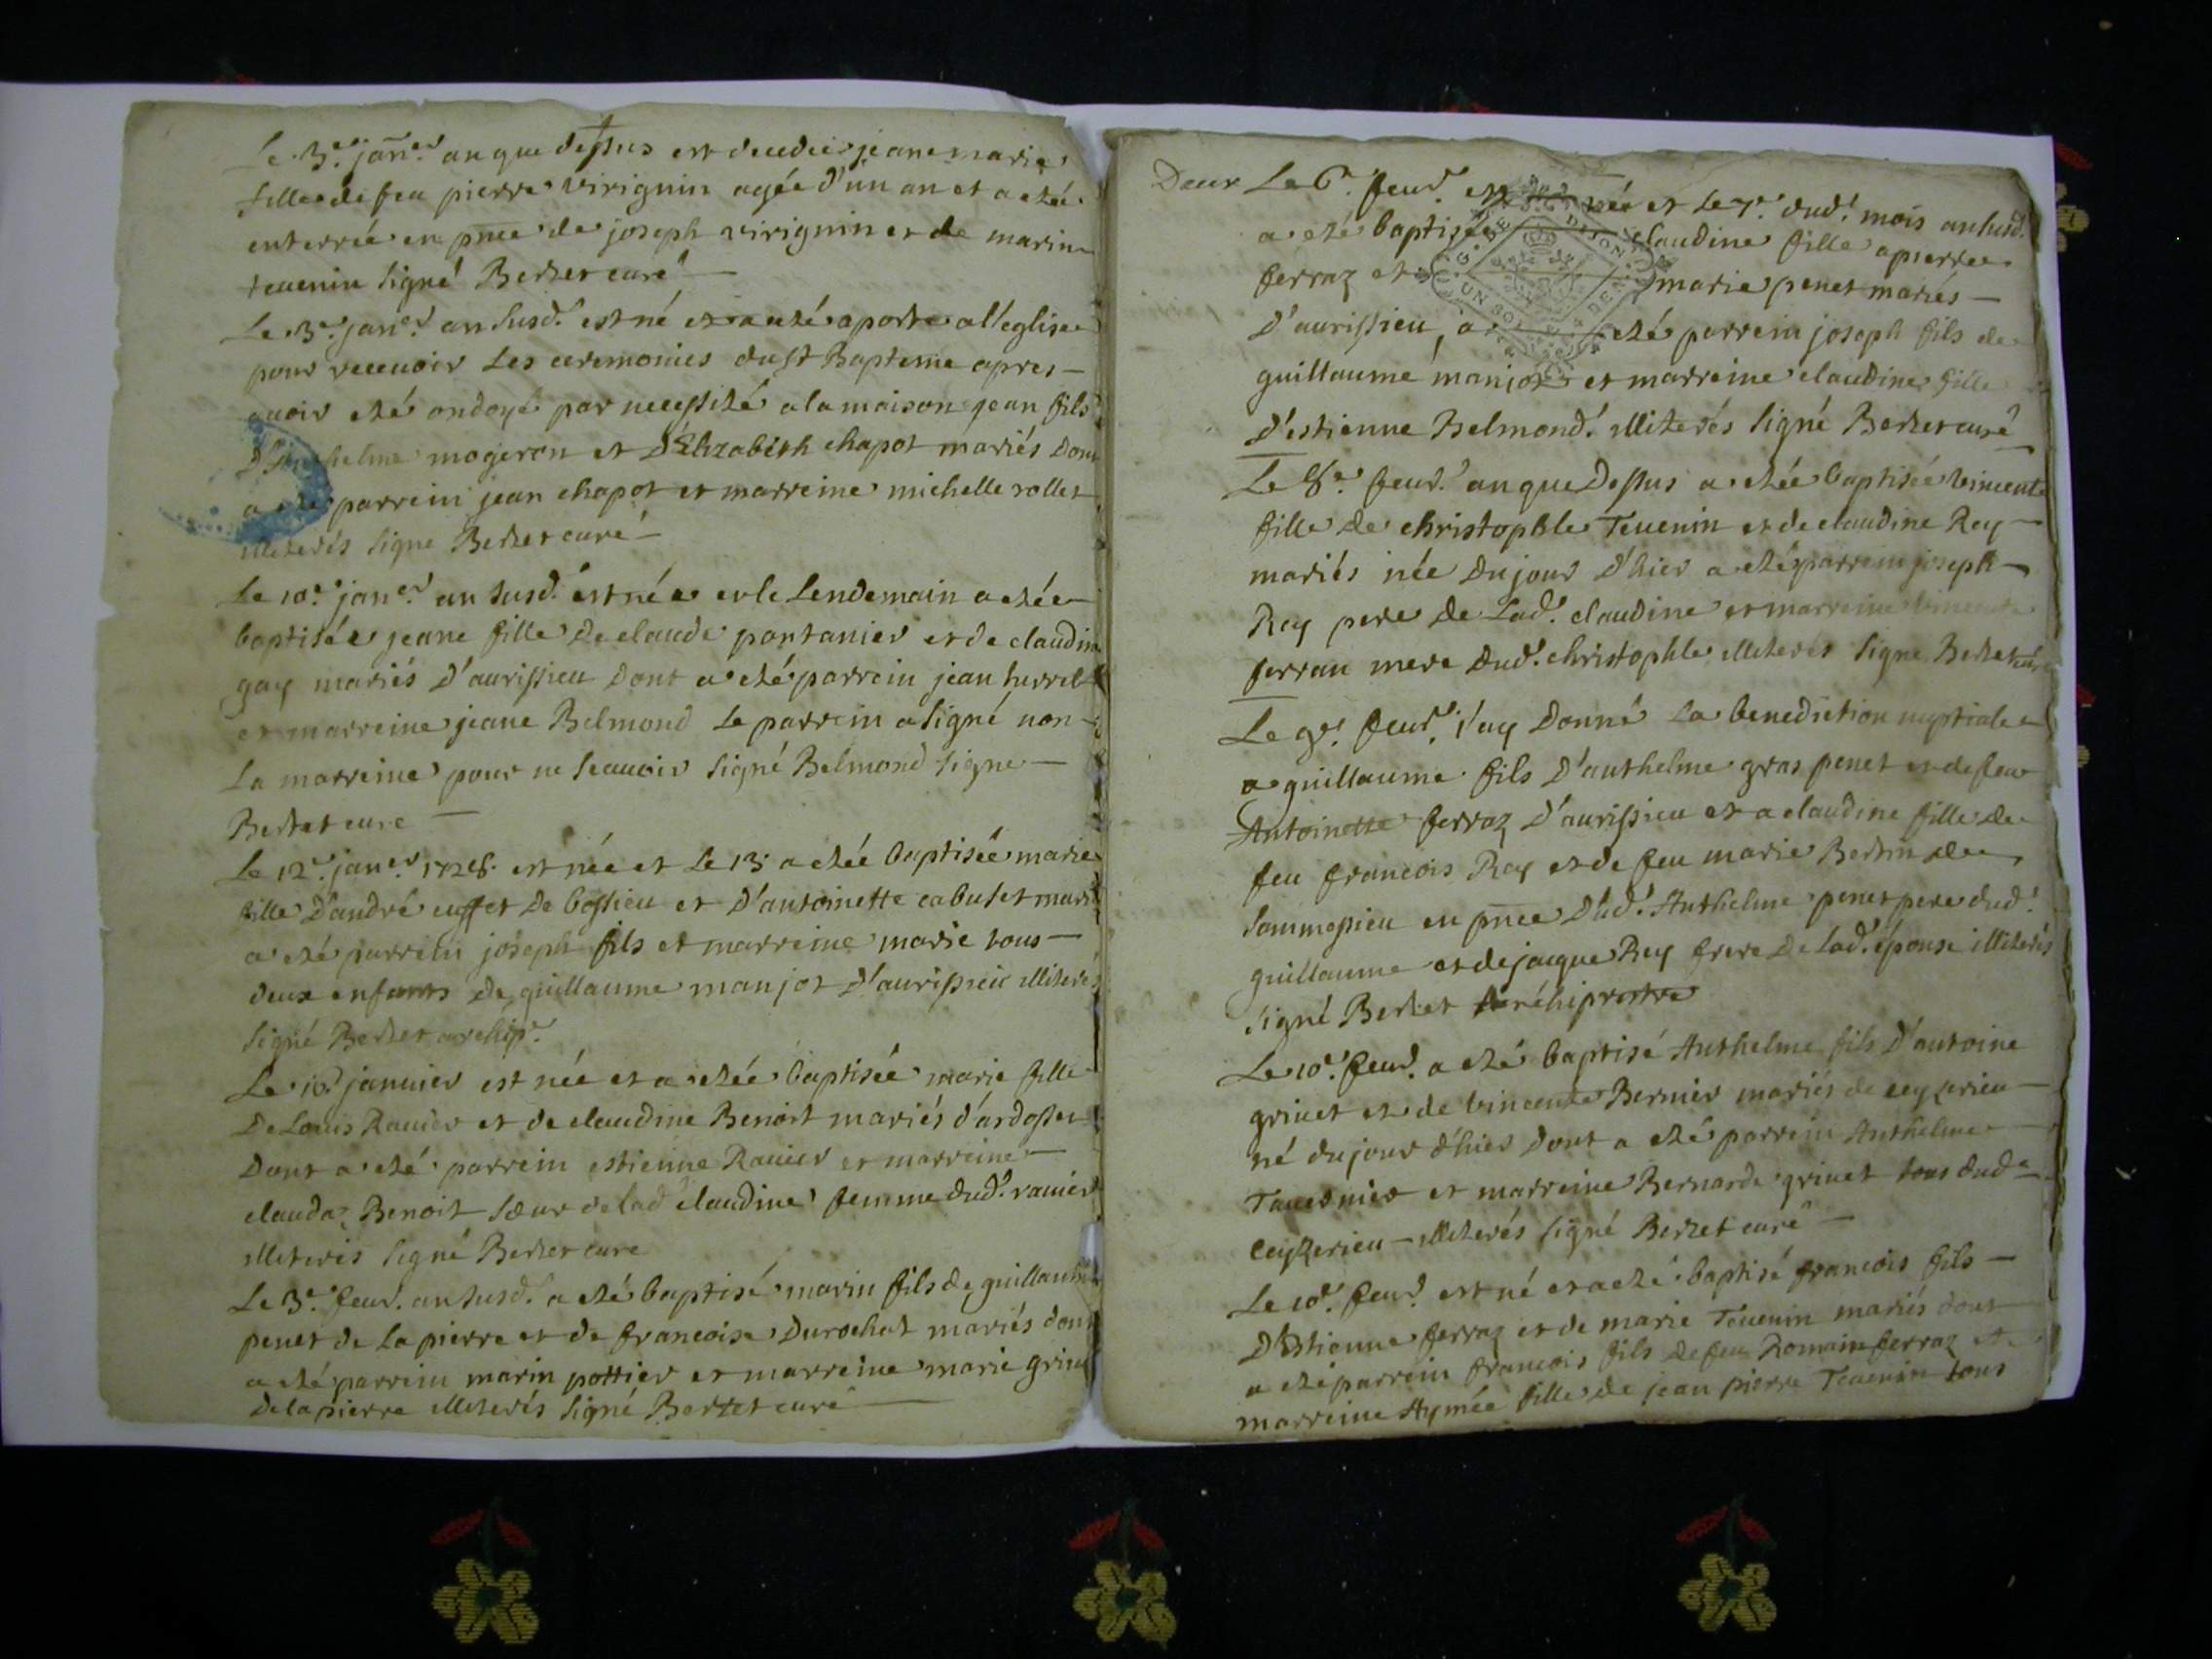 Le 3.e jan.er an que dessus est decedée jeane marie
fille de feu pierre virignin agée d'un an et a eté
enterrée en pnce de joseph virignin et de marin
teuenin signé Berzet curé
Le 3.e jan.er an susd.t est né et a eté aporté a l'eglise
pour receuoir les ceremonies du st Bapteme apres
auoir eté ondoyé par necessité a la maison jean fils
D'Anthelme mogeron et D'Elizabeth chapot mariés dont
a eté parrein jean chapot et marreine michelle rollet
illiterés signe Berzet curé
Le 10.e jan.er an susd. est née et le Lendemain a etée
baptisée jeane fille de claude pantanier et de claudine
gay mariés D'aurissieu Dont a eté parrein jean
et marreine jeane Belmond le parrein a signé non
La marreine pour ne scauoir signé Belmond signe
Berzet cure
Le 12.e jan.er 1728. est née et Le 13. a etée baptisée marie
fille D'andré cusset De bossieu et D'antoinette cabuset mariés
a eté parrein joseph fils et marreine marie tous
deux enfants de guillaume manjot D'aurissieu illiterés
signé Berzet archip.e
Le 16.e januier est née et a etée baptisée marie fille
De Louis Rauier et de claudine Benoit mariés d'ardosset
Dont a eté parrein estienne Rauier et marreine
clauda Benoit sœur de lad claudine femme dud. rauier
illiterés signé Berzet cure
Le 3.e feur. an susd. a eté baptisé marin fils de guillaume
penet de la pierre et de francoise Durochat mariés dont
a eté parrein marin pottier et marreine marie
De la pierre illiterés signé Berzet curé
Deux Le 6.e feur. est née et Le 7.e dud.t mois an susd.t
a eté baptisée claudine fille a pierre
ferraz et marie penet mariés
D'aurissieu, a eté parrein joseph fils de
guillaume manjot et marreine claudine fille
D'estienne Belmond. illiterés signé Berzet curé
Le 8.e feur. an que Dessus a etée baptisée vincente
fille de christophle Teuenin et de claudine Rey
mariés née du jour D'hier a eté parrein joseph
Rey pere de Lad. claudine et marreine vincente
ferran mere dud. christophle illiterés signe Berzet curé
Le 9.e feur. j'ay Donné La benediction nuptiale
a guillaume fils D'anthelme gras penet et de feue
Antoinette ferraz D'aurissieu et a claudine fille de
feu francois Rey et de feu marie Bertin de
sammessieu en pnce Dud. Anthelme penet pere dud.
guillaume et de jacque Rey frere de Lad. épouse illiterés
signé Berzet Archiprestre
Le 10.e feur. a eté baptisé Anthelme fils D'antoine
griuet et de vincente Bernier mariés de ceyzerieu
né du jour d'hier dont a eté parrein Anthelme
Tauernier et marreine Bernarde griuet tous dud
ceyzerieu illiterés signé Berzet curé
Le 10.e feur. est né et a eté baptisé francois fils
D'Estienne ferraz et de marie Teuenin mariés dont
a eté parrein francois fils de feu Romain ferraz et
marreine Aymée fille de jean pierre Teuenin tous